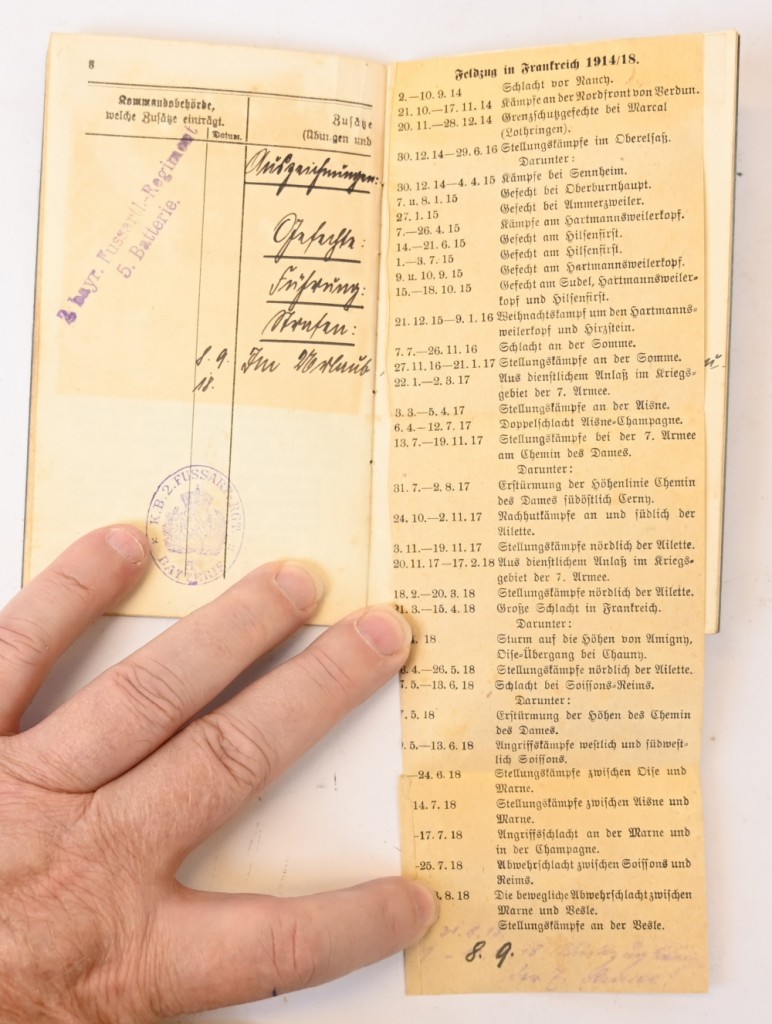 8
Kommandobehörde,
welche Zusätze einträgt.
Datum.
Zusätze
(Übungen und
2 bayr. Fussartl.-Regiment
5. Batterie.
Auszeichnungen:
Gefechte:
Führung:
Strafen:
8. 9. Im Urlaub
18.
K.B. 2. FUSSART. RGT.
Feldzug in Frankreich 1914/18.
2.—10. 9. 14 Schlacht vor Nancy.
21. 10.—17. 11. 14 Kämpfe an der Nordfront von Verdun.
20. 11.—28. 12. 14 Grenzschutzgefechte bei Marcal
(Lothringen).
30. 12. 14—29. 6. 16 Stellungskämpfe im Oberelsaß.
Darunter:
30. 12. 14—4. 4. 15 Kämpfe bei Sennheim.
7. u. 8. 1. 15 Gefecht bei Oberburnhaupt.
27. 1. 15 Gefecht bei Ammerzweiler.
7.—26. 4. 15 Kämpfe am Hartmannsweilerkopf.
14.—21. 6. 15 Gefecht am Hilsenfirst.
1.—3. 7. 15 Gefecht am Hilsenfirst.
9. u. 10. 9. 15 Gefecht am Hartmannsweilerkopf.
15.—18. 10. 15 Gefecht am Sudel, Hartmannsweiler-
kopf und Hilsenfirst.
21. 12. 15—9. 1. 16 Weihnachtskampf um den Hartmanns-
weilerkopf und Hirzstein.
7. 7.—26. 11. 16 Schlacht an der Somme.
27. 11. 16—21. 1. 17 Stellungskämpfe an der Somme.
22. 1.—2. 3. 17 Aus dienstlichem Anlaß im Kriegs-
gebiet der 7. Armee.
3. 3.—5. 4. 17 Stellungskämpfe an der Aisne.
6. 4.—12. 7. 17 Doppelschlacht Aisne-Champagne.
13. 7.—19. 11. 17 Stellungskämpfe bei der 7. Armee
am Chemin des Dames.
Darunter:
31. 7.—2. 8. 17 Erstürmung der Höhenlinie Chemin
des Dames südöstlich Cerny.
24. 10.—2. 11. 17 Nachhutkämpfe an und südlich der
Ailette.
3. 11.—19. 11. 17 Stellungskämpfe nördlich der Ailette.
20. 11. 17—17. 2. 18 Aus dienstlichem Anlaß im Kriegs-
gebiet der 7. Armee.
18. 2.—20. 3. 18 Stellungskämpfe nördlich der Ailette.
21. 3.—15. 4. 18 Große Schlacht in Frankreich.
Darunter:
4. 18 Sturm auf die Höhen von Amigny,
Oise-Übergang bei Chauny.
4.—26. 5. 18 Stellungskämpfe nördlich der Ailette.
5.—13. 6. 18 Schlacht bei Soissons-Reims.
Darunter:
5. 18 Erstürmung der Höhen des Chemin
des Dames.
5.—13. 6. 18 Angriffskämpfe westlich und südwest-
lich Soissons.
—24. 6. 18 Stellungskämpfe zwischen Oise und
Marne.
14. 7. 18 Stellungskämpfe zwischen Aisne und
Marne.
-17. 7. 18 Angriffsschlacht an der Marne und
in der Champagne.
-25. 7. 18 Abwehrschlacht zwischen Soissons und
Reims.
8. 18 Die bewegliche Abwehrschlacht zwischen
Marne und Vesle.
Stellungskämpfe an der Vesle.
8. 9. 18
der 7. Armee